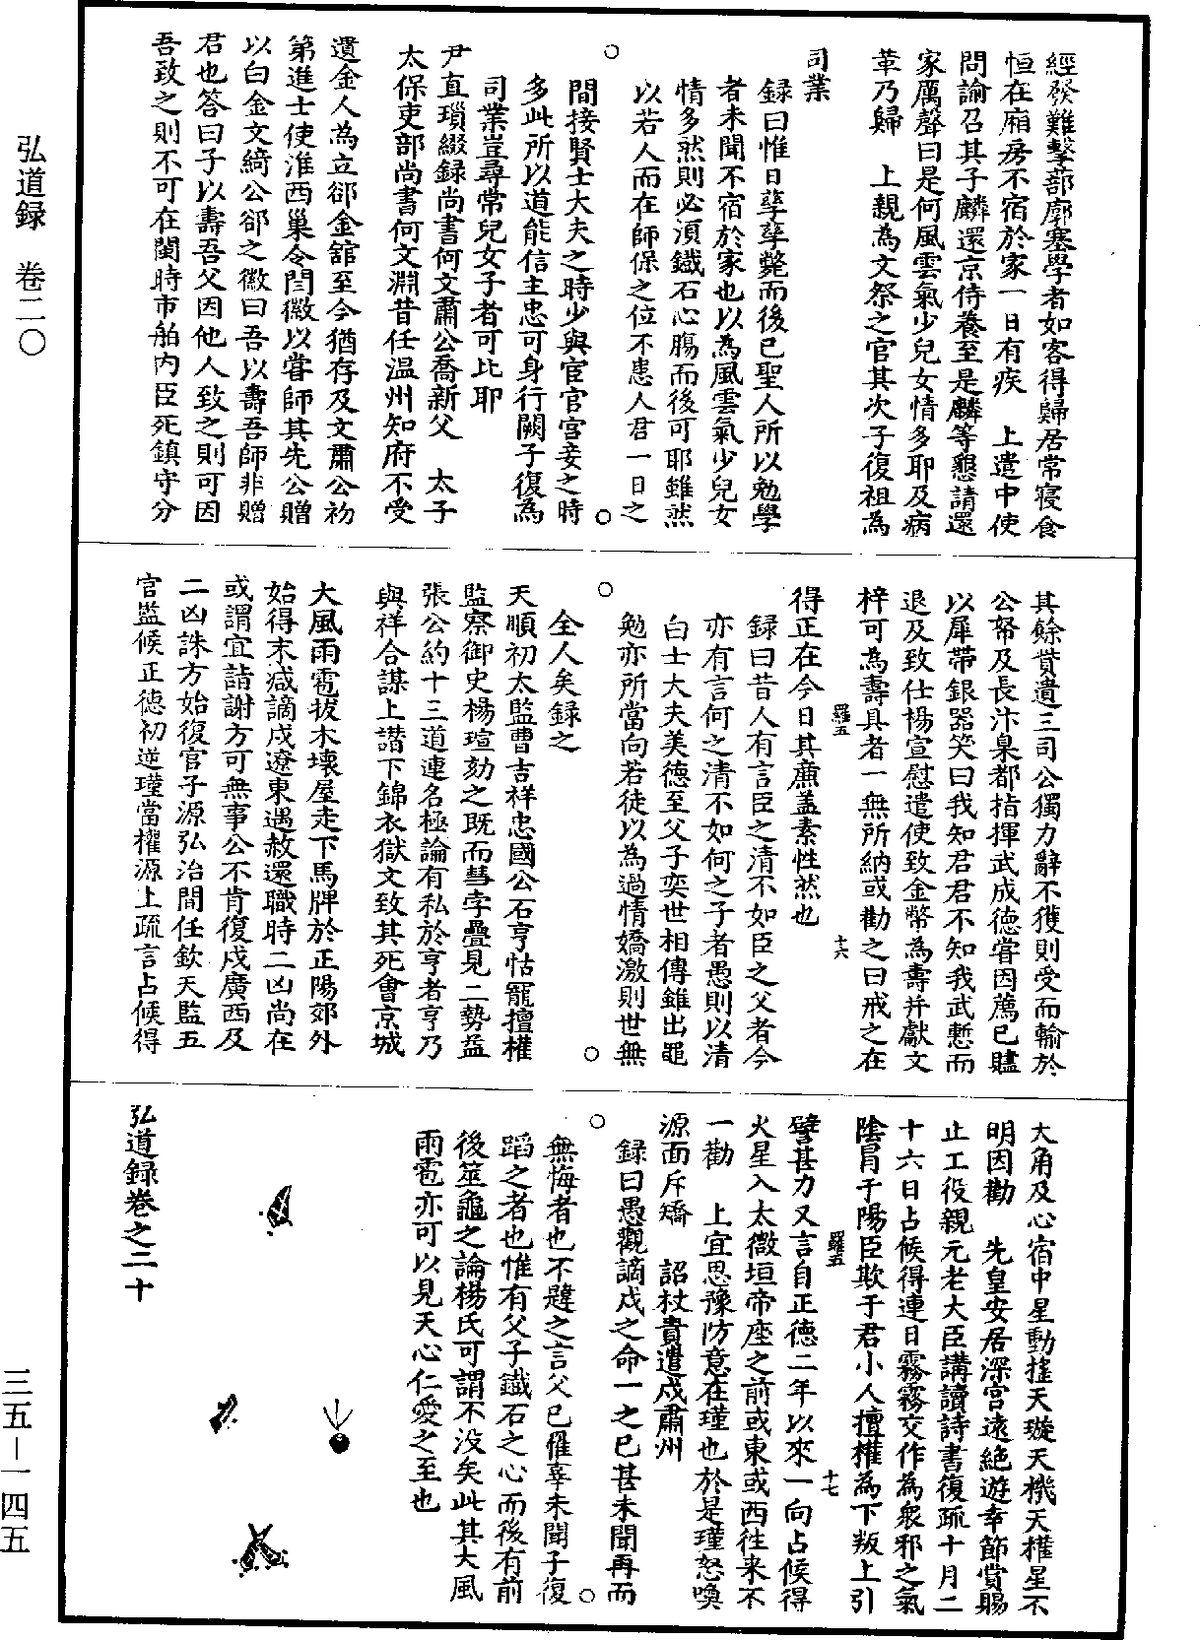 弘道録　卷二〇
經發難擊蔀廓塞學者如客得歸居常寢食
恒在廂房不宿於家一日有疾　上遣中使
問諭召其子麟還京侍養至是麟等懇請還
家厲聲曰是何風雲氣少兒女情多耶及病
革乃歸　上親為文祭之官其次子復祖為
司業
録曰惟日孳孳斃而後已聖人所以勉學
者未聞不宿於家也以為風雲氣少兒女
情多然則必湏鐵石心膓而後可耶雖然
以若人而在師保之位不患人君一日之
間接賢士大夫之時少與宦官宮妾之時
多此所以道能信主忠可身行闕子復為
司業豈尋常兒女子者可比耶
尹直瑣綴録尚書何文肅公喬新父　太子
太保吏部尚書何文淵昔任温州知府不受
遺金人為立郤金舘至今猶存及文肅公初
第進士使淮西巢令閆徽以嘗師其先公贈
以白金文綺公郤之徽曰吾以壽吾師非贈
君也答曰子以壽吾父因他人致之則可因
吾致之則不可在閩時市舶内臣死鎮守分
其餘貲遺三司公獨力辭不獲則受而輸於
公帑及長汴臬都指揮武成德嘗因薦已贐
以犀帶銀器笑曰我知君君不知我武慙而
退及致仕楊宣慰遣使致金幣為壽并獻文
梓可為壽具者一無所納或勸之曰戒之在
得正在今日其亷盖素性然也
羅五
十六
録曰昔人有言臣之清不如臣之父者今
亦有言何之清不如何之子者愚則以清
白士大夫美德至父子奕世相傳錐出黽
勉亦所當向若徒以為過情嬌激則世無
全人矣録之
天順初太監曹吉祥忠國公石亨怙寵擅權
監察御史楊瑄劾之既而彗孛疊見二勢益
張公約十三道連名極論有私於亨者亨乃
與祥合謀上譖下錦衣獄文致其死會京城
大風雨雹拔木壊屋走下馬牌於正陽郊外
始得末減謫戍遼東遇赦還職時二凶尚在
或謂宜詣謝方可無事公不肯復戍廣西及
二凶誅方始復官子源弘治間任欽天監五
官監候正德初逆瑾當權源上疏言占候得
大角及心宿中星動揺天璇天機天權星不
明因勸　先皇安居深宫遠絶遊幸節賞賜
止工役親元老大臣講讀詩書復疏十月二
十六日占候得連日霧霧交作為衆邪之氣
陰冐于陽臣欺于君小人擅權為下叛上引
譬甚力又言自正德二年以來一向占候得
羅五
十七
火星入太微垣帝座之前或東或西往来不
一勸　上宜思豫防意在瑾也於是瑾怒喚
源面斥矯　詔杖責遣戍肅州
録曰愚觀謫戍之命一之已甚未聞再而
無悔者也不韙之言父已罹辜未聞子復
蹈之者也惟有父子鐵石之心而後有前
後筮龜之論楊氏可謂不没矣此其大風
雨雹亦可以見天心仁愛之至也
弘道録卷之二十
三五－一四五